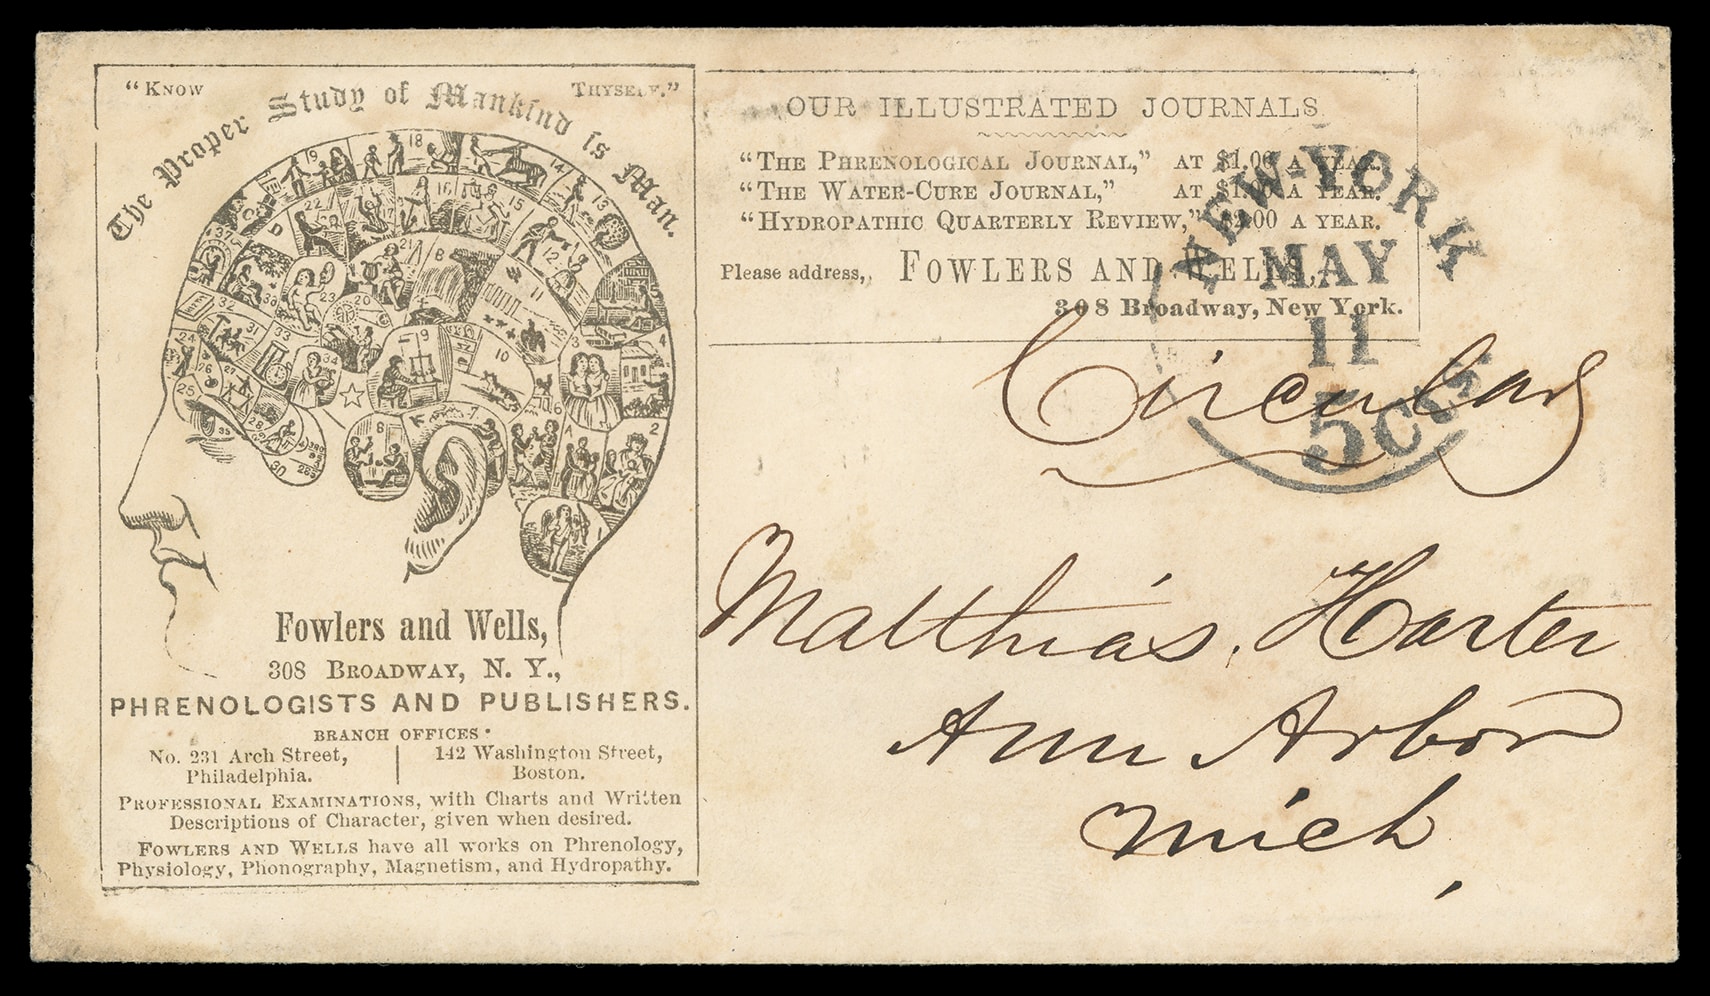 "Know Thyself."
The Proper Study of Mankind is Man.
19 18 14
22 16 15 13
C D 37 21 B 12
23 20 C 11
32 38
31 33 9 10 3 4
24 34
26 27
25 6
28 35 8 7 A 2
30
Fowlers and Wells,
308 Broadway, N. Y.,
PHRENOLOGISTS AND PUBLISHERS.
BRANCH OFFICES:
No. 231 Arch Street, | 142 Washington Street,
Philadelphia. | Boston.
Professional Examinations, with Charts and Written
Descriptions of Character, given when desired.
Fowlers and Wells have all works on Phrenology,
Physiology, Phonography, Magnetism, and Hydropathy.
OUR ILLUSTRATED JOURNALS
"The Phrenological Journal," at $1.00 a year.
"The Water-Cure Journal," at $1.00 a year.
"Hydropathic Quarterly Review," $2.00 a year.
Please address, Fowlers and Wells,
308 Broadway, New York.
NEW-YORK
MAY
11
5 cts
Circular
Matthias. Harter
Ann Arbor
Mich,